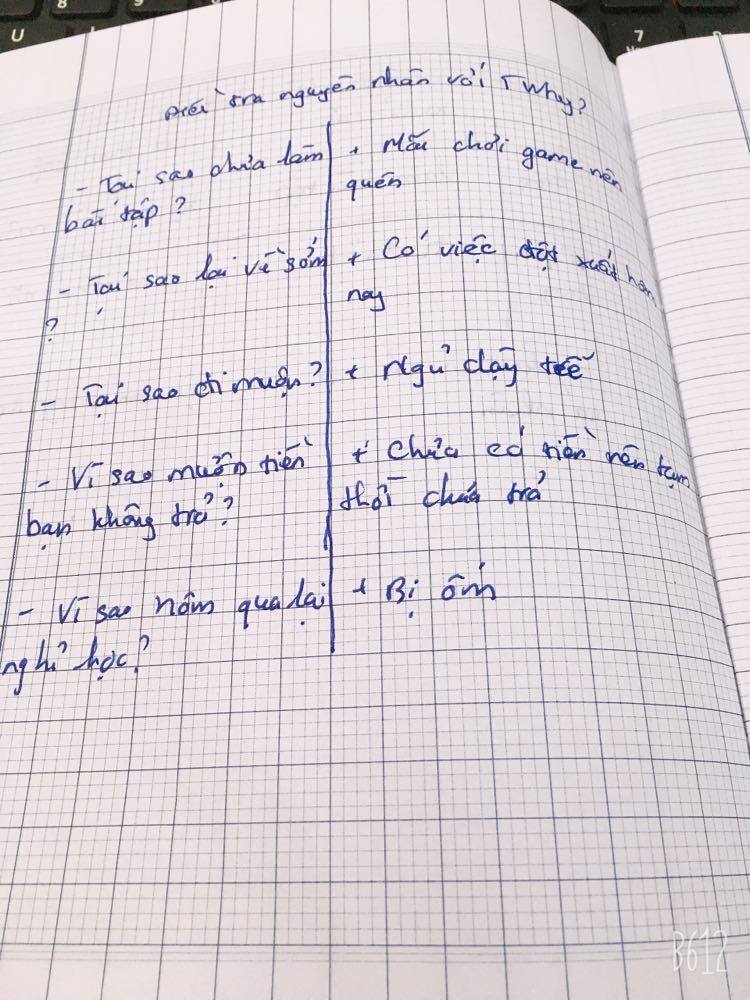 Điều tra nguyên nhân với 5 Why?
- Tại sao chưa làm
bài tập?
+ Mãi chơi game nên
quên
- Tại sao lại về sớm
?
+ Có việc đột xuất hôm
nay
- Tại sao đi muộn?
+ Ngủ dậy trễ
- Vì sao mượn tiền
bạn không trả?
+ Chưa có tiền nên tạm
thời chưa trả
- Vì sao hôm qua lại
nghỉ học?
+ Bị ốm
U
8
9
7
B612